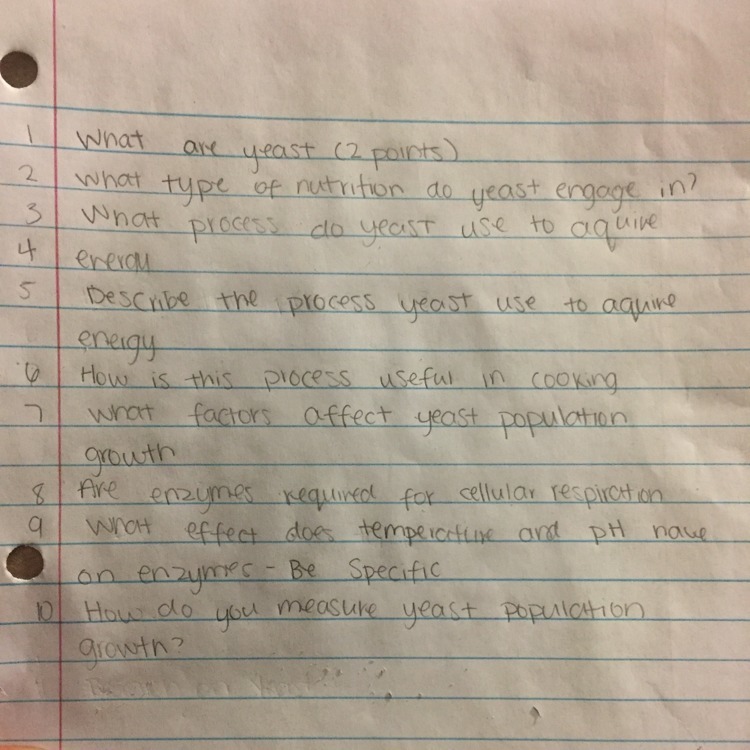 1 What are yeast (2 points)
2 What type of nutrition do yeast engage in?
3 What process do yeast use to aquire
4 energy
5 Describe the process yeast use to aquire
energy
6 How is this process useful in cooking
7 What factors affect yeast population
growth
8 Are enzymes required for cellular respiration
9 What effect does temperature and pH have
on enzymes - Be Specific
10 How do you measure yeast population
growth?